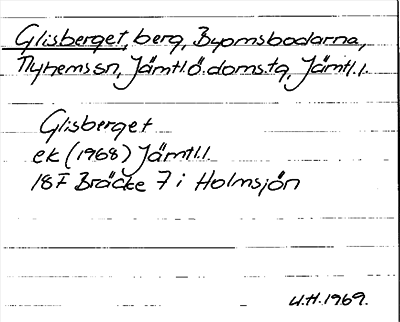 Glisberget, berg, Byomsbodarna,
Nyhemssn, Jämtl.ö.doms.tg, Jämtl.l.
Glisberget
ek (1968) Jämtl.l.
18F Bräcke 7 i Holmsjön
U.H. 1969.